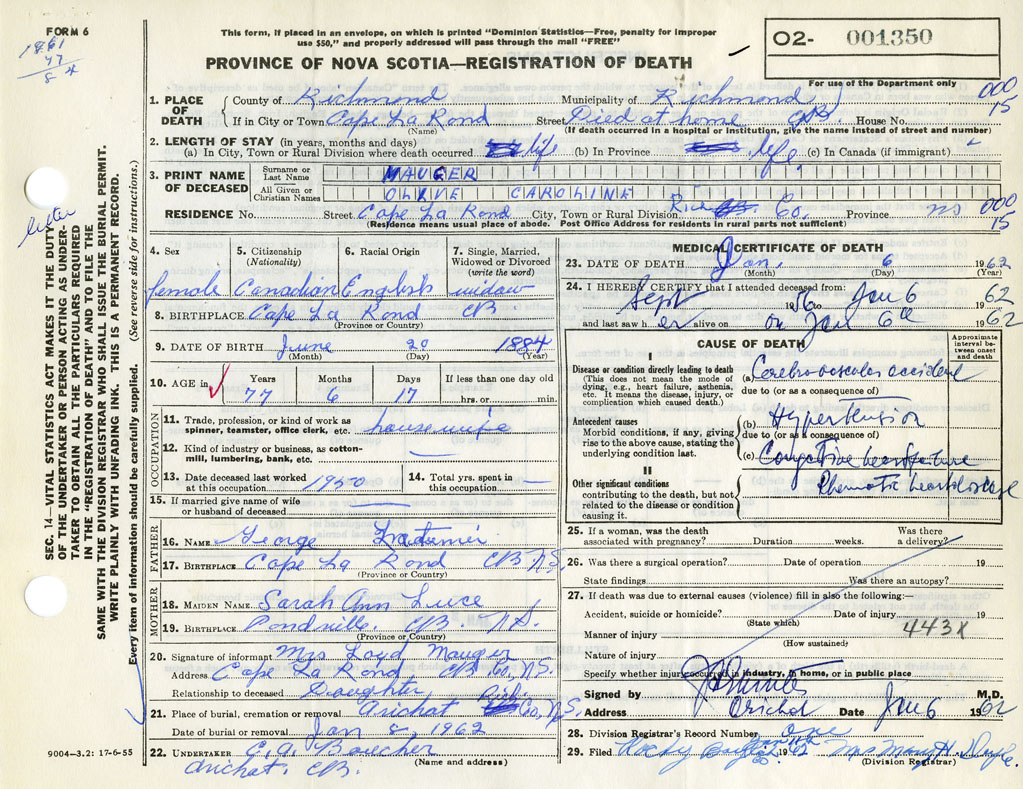 FORM 6
1861
77
84
This form, if placed in an envelope, on which is printed "Dominion Statistics—Free, penalty for improper
use $50," and properly addressed will pass through the mail "FREE"
02- 001350
For use of the Department only
PROVINCE OF NOVA SCOTIA—REGISTRATION OF DEATH
000
15
1. PLACE OF DEATH County of Richmond Municipality of Richmond
If in City or Town Cape La Rond Street Died at home CB. House No.
(Name) (If death occurred in a hospital or institution, give the name instead of street and number)
2. LENGTH OF STAY (in years, months and days)
(a) In City, Town or Rural Division where death occurred life (b) In Province life (c) In Canada (if immigrant)
3. PRINT NAME OF DECEASED Surname or Last Name MAUGER
All Given or Christian Names OLIVE CAROLINE
RESIDENCE No. Street Cape La Rond City, Town or Rural Division Rich Co. Province NS
000
15
(Residence means usual place of abode. Post Office Address for residents in rural parts not sufficient)
letter
SEC. 14—VITAL STATISTICS ACT MAKES IT THE DUTY
OF THE UNDERTAKER OR PERSON ACTING AS UNDER-
TAKER TO OBTAIN ALL THE PARTICULARS REQUIRED
IN THE "REGISTRATION OF DEATH" AND TO FILE THE
SAME WITH THE DIVISION REGISTRAR WHO SHALL ISSUE THE BURIAL PERMIT.
WRITE PLAINLY WITH UNFADING INK. THIS IS A PERMANENT RECORD.
Every item of information should be carefully supplied. (See reverse side for instructions.)
4. Sex 5. Citizenship (Nationality) 6. Racial Origin 7. Single, Married, Widowed or Divorced (write the word)
female Canadian English widow
8. BIRTHPLACE Cape La Rond CB.
(Province or Country)
9. DATE OF BIRTH June 20 1884
(Month) (Day) (Year)
10. AGE in Years Months Days If less than one day old
77 6 17 hrs. or min.
OCCUPATION
11. Trade, profession, or kind of work as
spinner, teamster, office clerk, etc. housewife
12. Kind of industry or business, as cotton-
mill, lumbering, bank, etc.
13. Date deceased last worked at this occupation 1950 14. Total yrs. spent in this occupation
15. If married give name of wife
or husband of deceased
FATHER
16. NAME George
17. BIRTHPLACE Cape La Rond CB N.S
(Province or Country)
MOTHER
18. MAIDEN NAME Sarah Ann Luce
19. BIRTHPLACE Pondville CB. N.S.
(Province or Country)
20. Signature of informant Mrs Loyd Mauger
Address Cape La Rond CB Co, N.S.
Relationship to deceased Daughter
21. Place of burial, cremation or removal Arichat Rich Co, N.S.
Date of burial or removal Jan 8, 1962
22. UNDERTAKER C.A. Boucher
(Name and address)
Arichat. CB.
9004—3.2: 17-6-55
MEDICAL CERTIFICATE OF DEATH
23. DATE OF DEATH Jan. 6 1962
(Month) (Day) (Year)
24. I HEREBY CERTIFY that I attended deceased from:
Sept 1956 to Jan 6 1962
and last saw her alive on on Jan 6th 1962
CAUSE OF DEATH
Approximate interval between onset and death
I
Disease or condition directly leading to death
(This does not mean the mode of
dying, e.g., heart failure, asthenia,
etc. It means the disease, injury, or
complication which caused death.)
(a) Cerebrovascular accident
due to (or as a consequence of)
Antecedent causes
Morbid conditions, if any, giving
rise to the above cause, stating the
underlying condition last.
(b) Hypertension
due to (or as a consequence of)
(c) Congestive heart failure
II
Other significant conditions
contributing to the death, but not
related to the disease or condition
causing it.
Rhematic heart disease
25. If a woman, was the death Was there
associated with pregnancy? Duration weeks. a delivery?
26. Was there a surgical operation? Date of operation 19
State findings Was there an autopsy?
27. If death was due to external causes (violence) fill in also the following:—
Accident, suicide or homicide? Date of injury 19
(State which)
443X
Manner of injury
(How sustained)
Nature of injury
Specify whether injury occurred in industry, in home, or in public place
Signed by M.D.
Address Arichat Date Jan 6 1962
28. Division Registrar's Record Number one
29. Filed 1962 Mrs Mary H. Doyle
(Division Registrar)